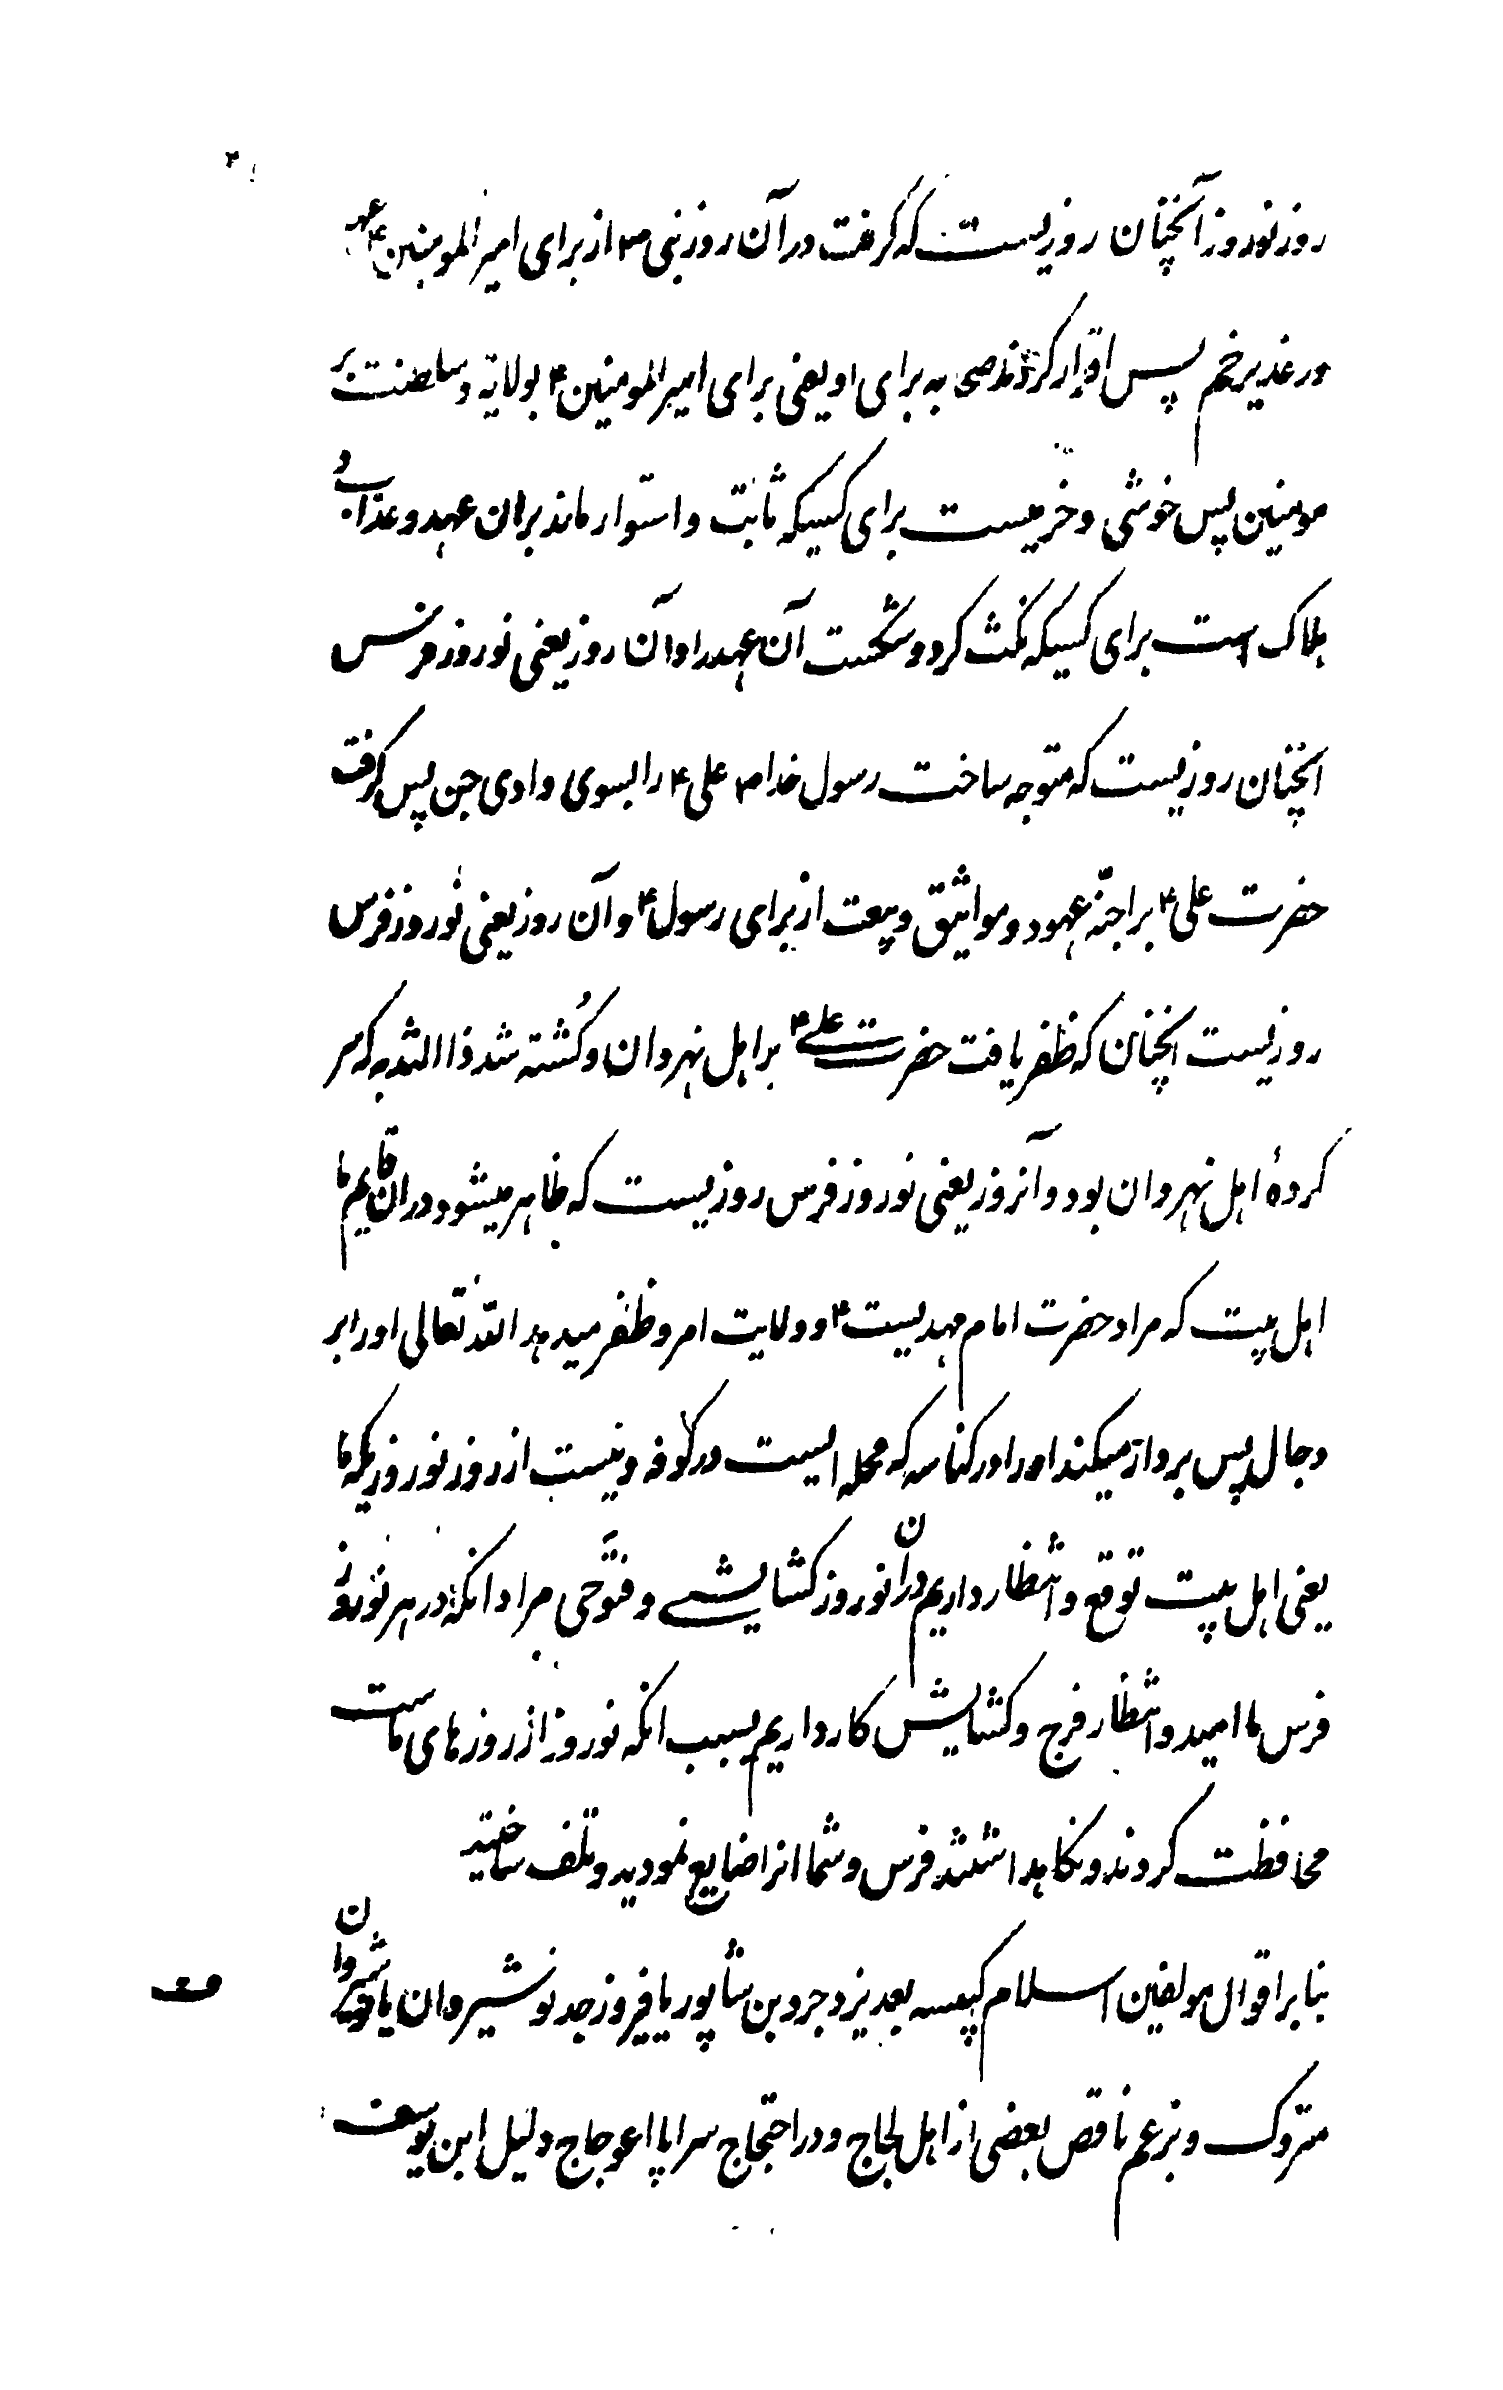 روز نوروز آنچنان روزیست که گرفت در آن روز نبی ص از برای امیر المومنین ع عهد
در غدیر خم پس اقرار کردند صحابه برای او یعنی برای امیر المومنین ع بولایة و سلطنت بر
مومنین پس خوشی و خرمیست برای کسیکه ثابت و استوار ماند بران عهد و عذاب و
هلاک است برای کسیکه نکث کرد و شکست آن عهد را و آن روز یعنی نوروز فرس
آنچنان روزیست که متوجه ساخت رسول خدا ص علی ع را بسوی وادی جن پس گرفت
حضرت علی ع بر اجنّه عهود و مواثیق و بیعت از برای رسول ع و آن روز یعنی نوروز فرس
روزیست آنچنان که ظفر یافت حضرت علی ع بر اهل نهروان و کُشته شد ذا الثدیه که سر
کردهٔ اهل نهروان بود و آنروز یعنی نوروز فرس روزیست که ظاهر میشود دران قایم ما
اهل بیت که مراد حضرت امام مهدیست ع و ولایت امر و ظفر میدهد الله تعالی او را بر
دجال پس بردار میکند او را در کناسه که محله ایست در کوفه و نیست از روز نوروزیکه ما
یعنی اهل بیت توقع و انتظار داریم دران نوروز کشایشی و فتوحی مراد انکه در هر نوروز
فرس ما امید و انتظار فرج و کشایش کار داریم بسبب انکه نوروز از روزهای ماست
محافظت کردند و نگاهداشتند فرس و شما انرا ضایع نمودید و تلف ساختید
بنابر اقوال مولفین اسلام کبیسه بعد یزدجرد بن شاپور یا فیروز جد نوشیروان یا نوشیروان
متروک و بزعم ناقص بعضی از اهل لجاج و در احتجاج سراپا اعوجاج دلیل ابن یوسف